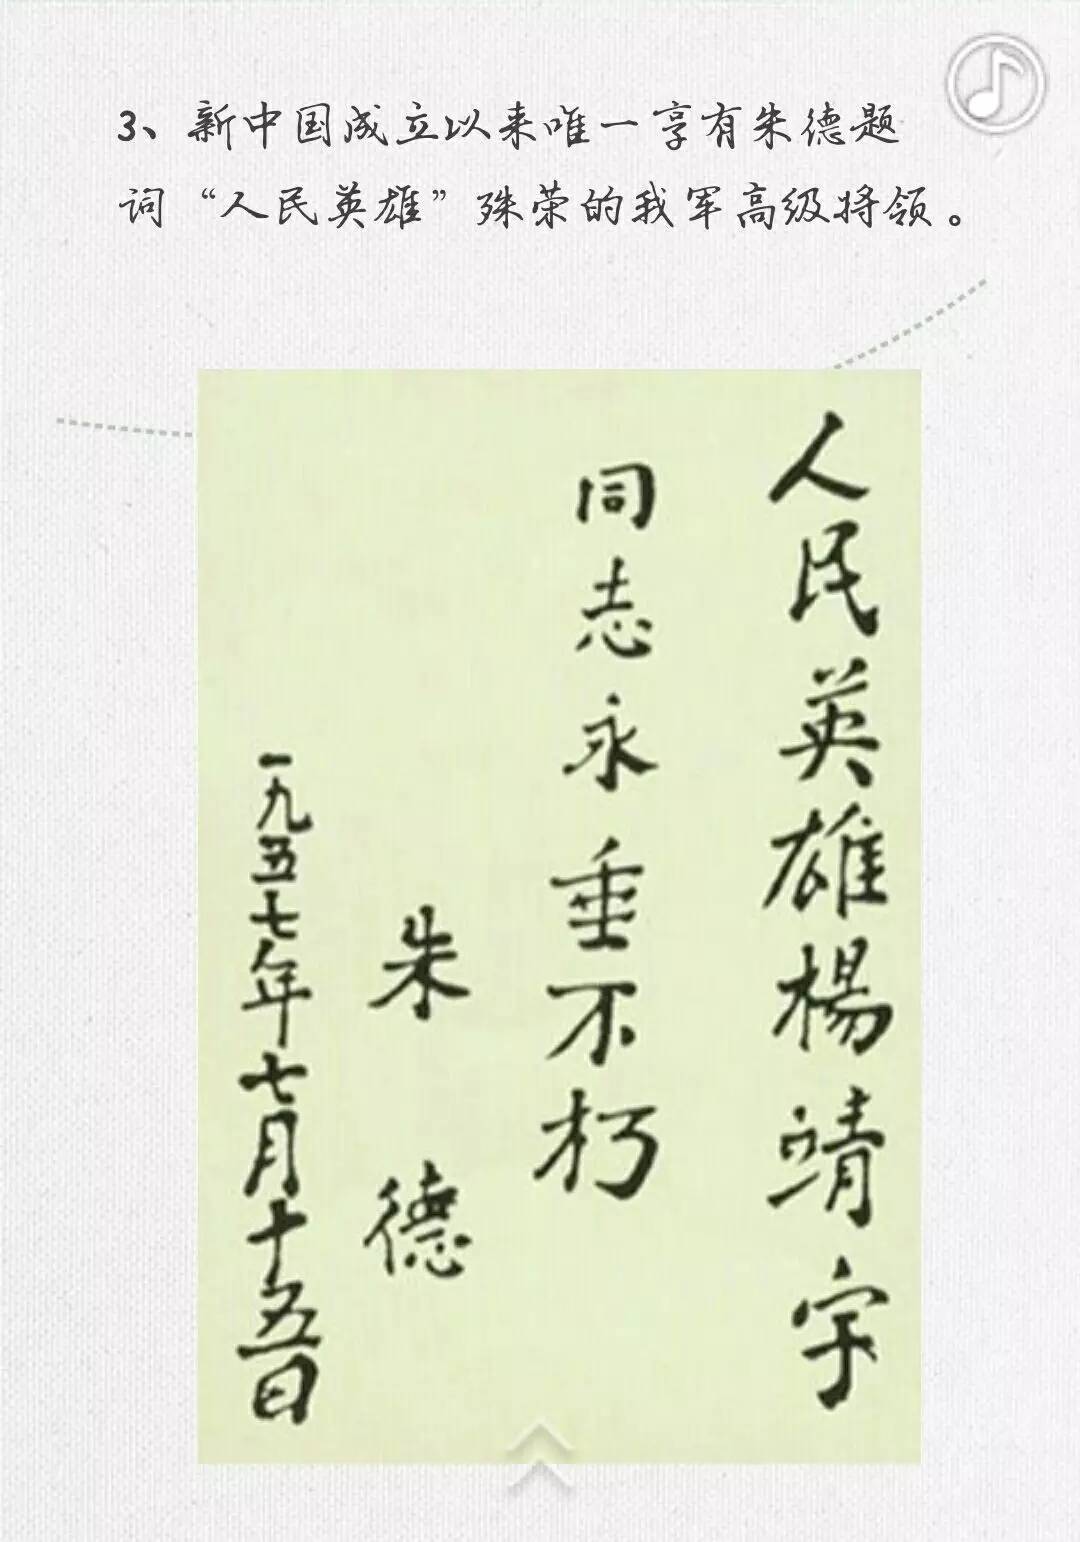 3、新中国成立以来唯一享有朱德题
词“人民英雄”殊荣的我军高级将领。
人民英雄楊靖宇
同志永垂不朽
朱德
一九五七年七月十五日